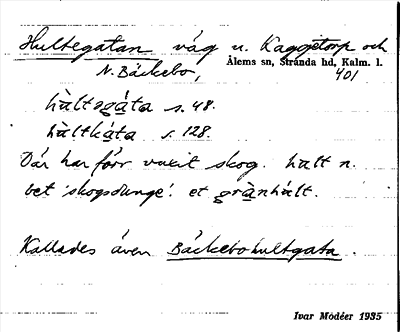 Hultegatan väg n. Kaggetorp och
N. Bäckebo,
Ålems sn, Stranda hd, Kalm. l.
401
hàltegáta s. 48.
hàltkáta s. 128.
Där har förr varit skog. halt n.
bet 'skogsdunge'. et grànhált.
Kallades även Bäckebohultgata.
Ivar Modéer 1935